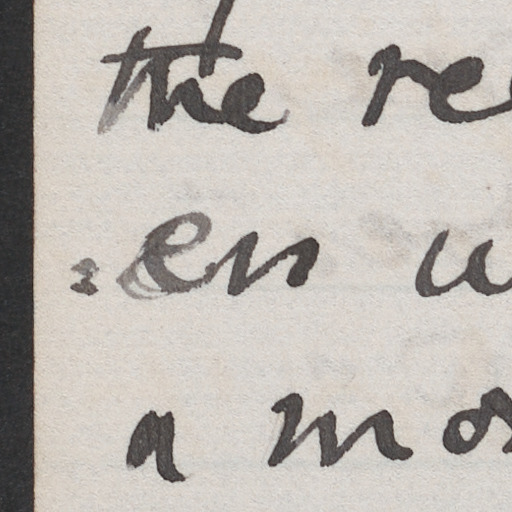 the re
=en
a mo